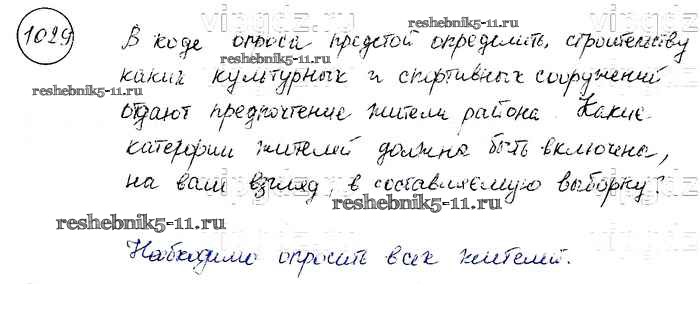 1029
В ходе опроса предстой определить, строительству
каких культурных и спортивных сооружений
отдают предпочтение жители района. Какие
категории жителей должна быть включена,
на ваш взгляд, в составляемую выборку?
Набходимо опросить всех жителей.
reshebnik5-11.ru
reshebnik5-11.ru
reshebnik5-11.ru
reshebnik5-11.ru
reshebnik5-11.ru